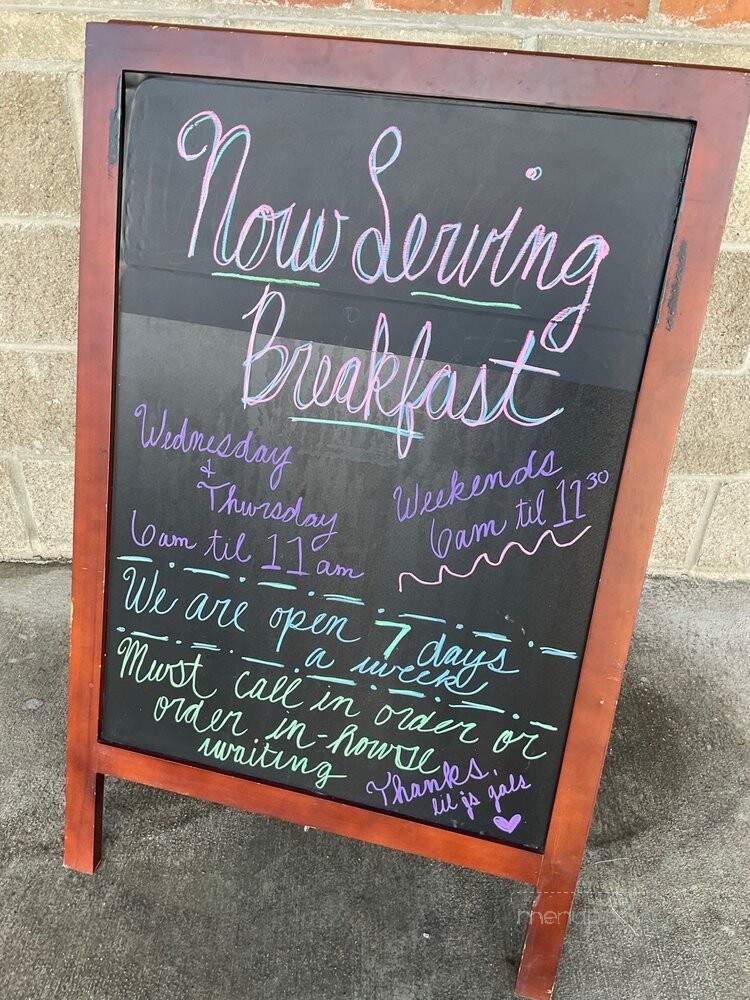 Now Serving
Breakfast
Wednesday
&
Thursday
6am til 11am
Weekends
6am til 11³⁰
We are open 7 days
a week
Must call in order or
order in-house
waiting
Thanks,
lil js gals